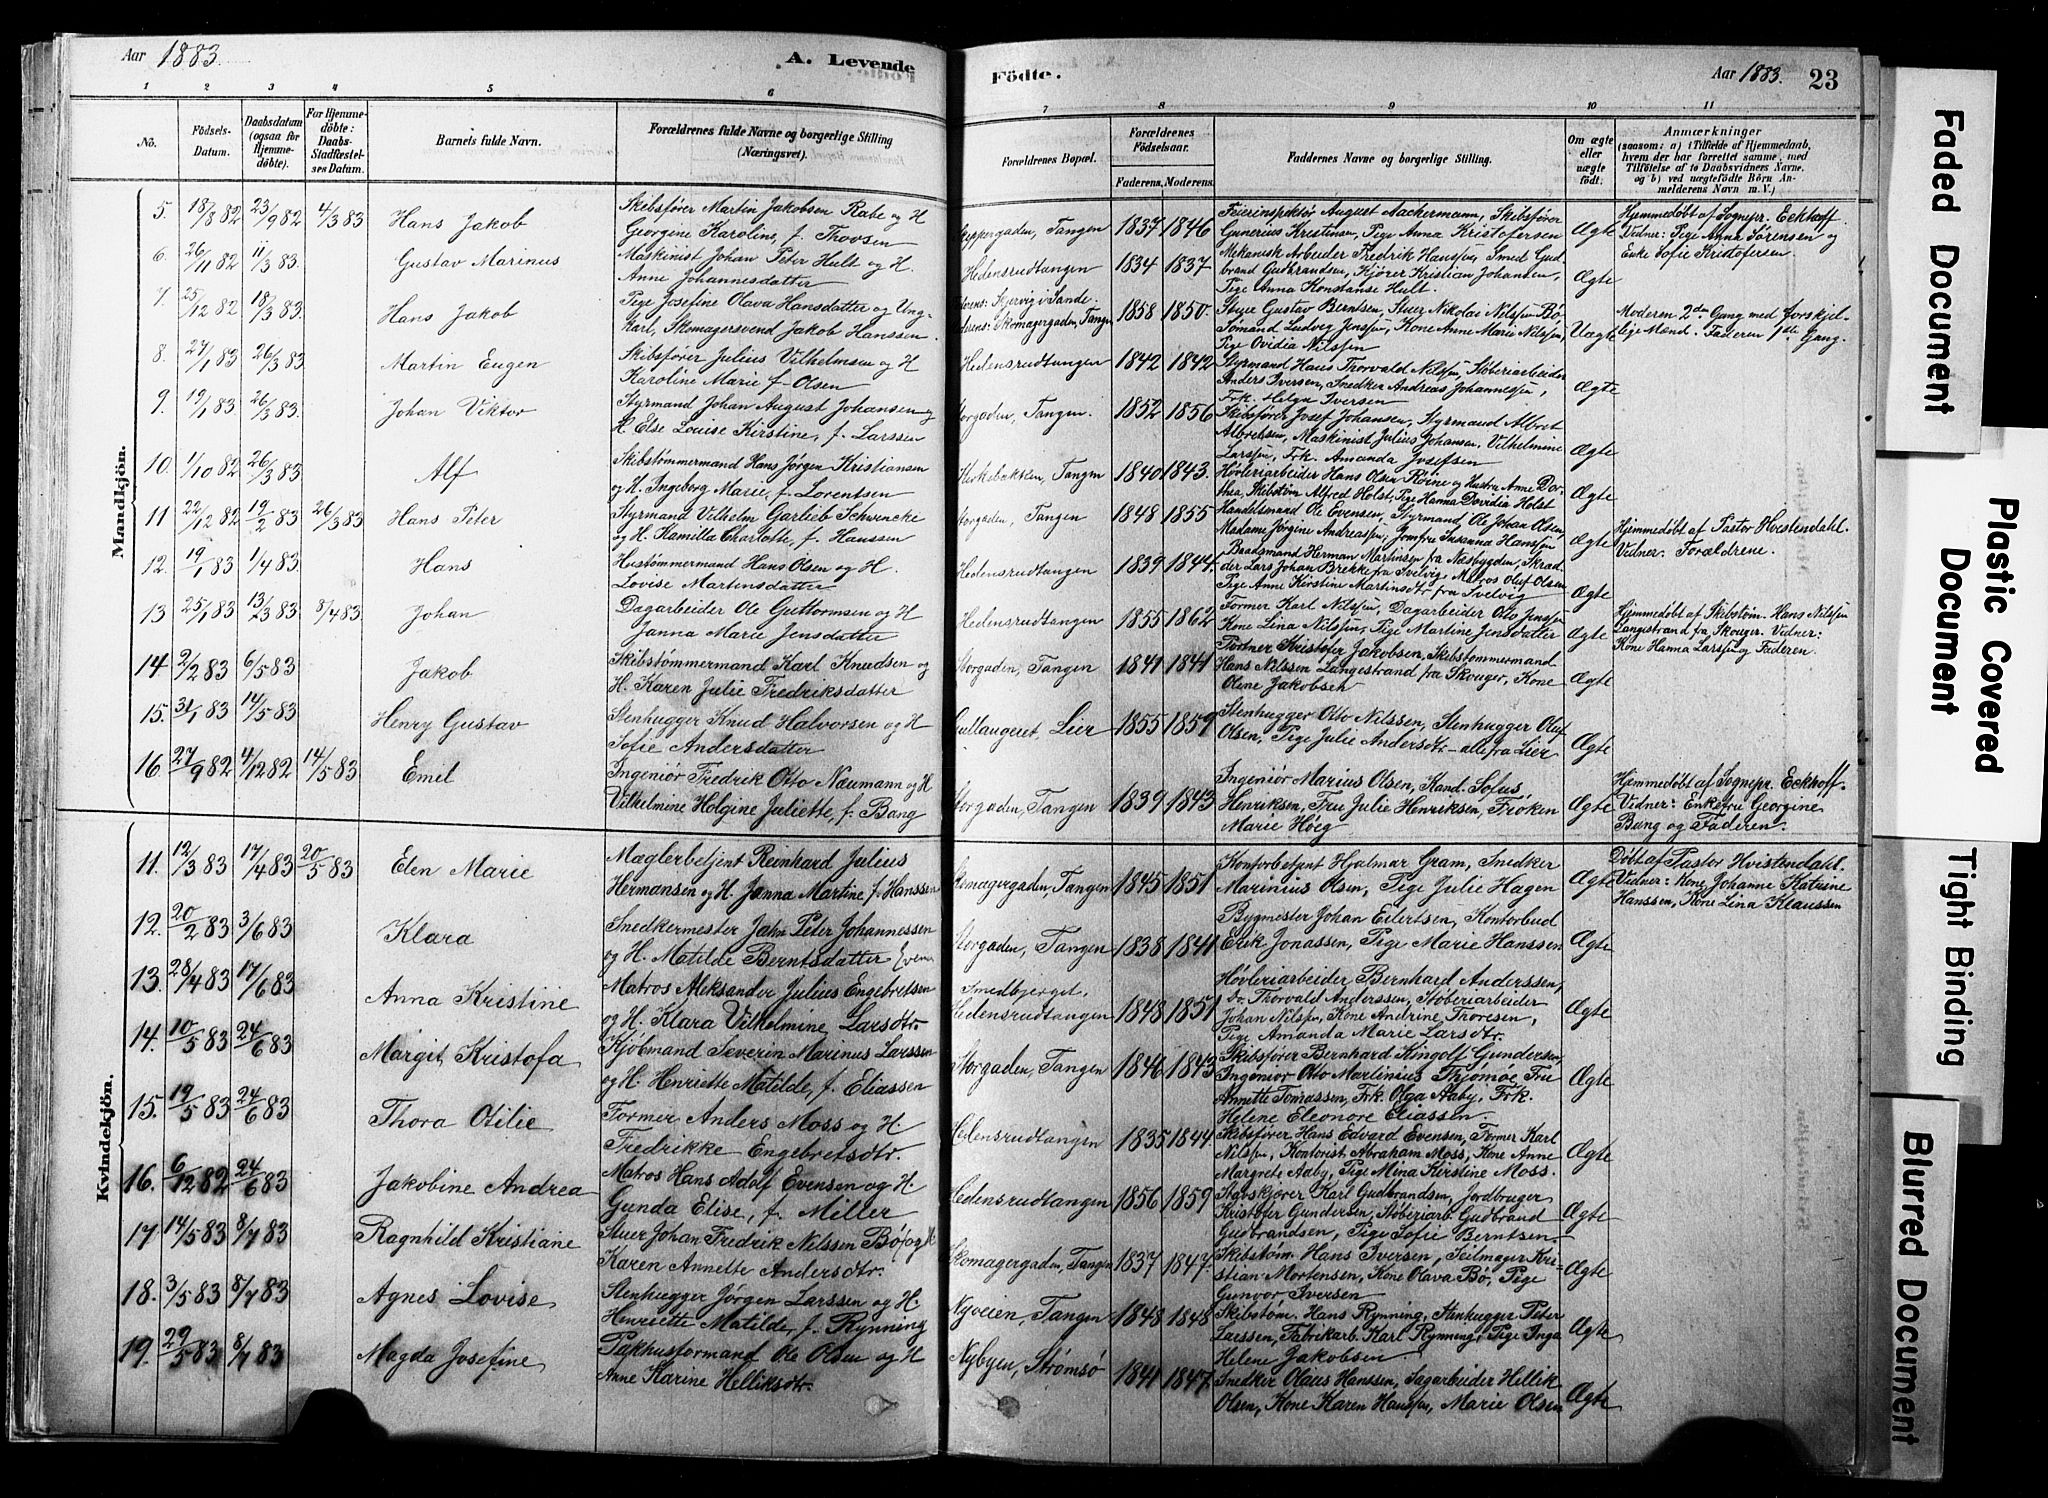 Aar 1883. A. Levende
1 2 3 4 5 6
No. Födsels-Datum. Daabsdatum (ogsaa for Hjemmedöbte). For Hjemmedöbte: Daabs-Stadfæstelses Datum. Barnets fulde Navn. Forældrenes fulde Navne og borgerlige Stilling (Næringsvei).
Mandkjön.
5. 18/8 82 23/9 82 4/3 83 Hans Jakob Skibsfører Martin Jakobsen Rabe og H.
Georgine Karoline, f. Thovsen
6. 26/11 82 11/3 83. Gustav Marinus Maskinist Johan Peter Hult og H.
Anne Johannesdatter
7. 25/12 82 18/3 83. Hans Jakob Pige Josefine Olava Hansdatter og Ung-
karl, Skomagersvend Jakob Hanssen.
8. 27/1 83 26/3 83 Martin Eugen Skibsfører Julius Vilhelmsen og H
Karoline Marie f. Olsen
9. 19/1 83. 26/3 83. Johan Viktor Styrmand Johan August Johansen og
H. Else Louise Kirstine, f. Larssen
10. 1/10 82 26/3 83 Alf Skibstømmermand Hans Jørgen Kristiansen
og H. Ingeborg Marie, f. Lorentsen
11 22/12 82 19/2 83 26/3 83 Hans Peter Styrmand Vilhelm Garlieb Schwencke
og H. Hamilla Charlotte, f. Hanssen
12. 19/1 83 1/4 83. Hans Hustømmermand Hans Olsen og H.
Lovise Martinsdatter
13 25/1 83 13/3 83 8/4 83 Johan Dagarbeider Ole Guttormsen og H
Janna Marie Jensdatter
14 2/2 83 6/5 83 Jakob Skibstømmermand Karl Knudsen og
H. Karen Julie Fredriksdatter
15. 31/1 83 14/5 83 Henry Gustav Stenhugger Knud Halvorsen og H
Sofie Andersdatter
16. 27/9 82 4/12 82 14/5 83 Emil Ingeniør Fredrik Otto Naumann og H
Vilhelmine Holgine Juliette, f. Bang
Kvindekjön.
11. 12/3 83 17/4 83 20/5 83 Elen Marie Mæglerbetjent Reinhard Julius
Hermansen og H. Janna Martine f. Hanssen
12. 20/2 83 3/6 83 Klara Snedkermester Jahn Peter Johannessen
og H. Matilde Berntsdatter
13. 28/4 83 17/6 83 Anna Kristine Matros Aleksander Julius Engebretsen
og H. Klara Vilhelmine Larsdtr.
14. 10/5 83 24/6 83 Margit Kristofa Kjøbmand Severin Marinus Larssen
og H. Henriette Matilde, f. Eliassen
15. 19/5 83 24/6 83 Thora Otilie Former Anders Moss og H.
Fredrikke Engebretsdtr.
16. 6/12 82 24/6 83 Jakobine Andrea Matros Hans Adolf Evensen og H.
Gunda Elise, f. Miller
17. 14/5 83 8/7 83 Ragnhild Kristiane Stuer Johan Fredrik Nilssen Bø og H
Karen Annette Andersdtr.
18. 3/5 83 8/7 83 Agnes Lovise Stenhugger Jørgen Larssen og H.
Henriette Matilde, f. Rynning
19. 29/5 83 8/7 83 Magda Josefine Pakhusformand Ole Olsen og H
Anne Karine Helliksdtr.
Födte. Aar 1883. 23
7 8 9 10 11
Forældrenes Bopæl. Forældrenes Födselsaar. Faderens. Moderens. Faddernes Navne og borgerlige Stilling. Om ægte eller uægte født. Anmærkninger (saasom: a) i Tilfælde af Hjemmedaab, hvem der har forrettet samme, med Tilføielse af to Daabsvidners Navne, og b) ved uægtefödte Börn Anmelderens Navn m. V.)
Feierinspektør August Aachermann, Skibsfører Hjemmedøbt af Sognepr. Eckhoff.
Skeppergaden, Tangen 1837 1846 Gunerius Kristensen, Pige Anna Kristofersen Ægte Vidner: Pige Anna Sørensen og
Mekanisk Arbeider Fredrik Hanssen, Smed Gud- Enke Sofie Kristofersen.
Hedensrudtangen 1834 1837 brand Gudbrandsen, Kjører Kristian Johansen, Ægte
Pige Anna Konstanse Hult.
Faderens: Skjervig i Sande. 1858 1850. Stuer Gustav Berntsen, Stuer Nikolai Nilssen Bø Uægte Moderen 2den Gang med forskjel-
Moderens: Skomagergaden, Tangen Sømand Ludvig Jenssen, Kone Anne Marie Nilssen, lige Mænd. Faderen 1ste Gang.
Pige Ovidia Nilssen
Hedensrudtangen 1842 1842 Styrmand Hans Thorvald Nilssen, Støberiarbeider
Anders Iversen, Snedker Andreas Johannessen, Ægte
Frk. Helga Iversen
Storgaden, Tangen. 1852 1856 Skibsfører Josef Johansen, Styrmand Albret
Albretsen, Maskinist Julius Johansen, Vilhelmine Ægte
Larssen, Frk. Amanda Josefsen
Kirkebakken, Tangen 1840 1843. Høvleriarbeider Hans Olsen Røine og Hustru Anne Do- Ægte
thea, Skibstøm Alfred Holst, Pige Hanna Davidia Holst
Storgaden, Tangen 1848 1855 Handelsmand Ole Evensen, Styrmand Ole Johan Olsen, Hjemmedøbt af Pastor Hvistendahl.
Madame Jørgine Andreassen, Jomfru Susanna Hanssen Ægte Vidner: Forældrene.
Hedensrudtangen 1839 1844. Baadsmand Herman Martinsen fra Næsbygden, Skræd-
der Lars Johan Brekke fra Svelvig, Matros Oluf Olsen
Pige Anne Kirstine Martinsdtr fra Svelvig Ægte
Hedensrudtangen 1855 1862 Former Karl Nilssen, Dagarbeider Ole Jenssen Hjemmedøbt af Skibstøm. Hans Nilssen
Kone Lina Nilssen, Pige Martine Jensdatter Ægte Langestrand fra Skouger. Vidner:
Portner Kristofer Jakobsen, Skibstømmermand Kone Hanna Larssen og Faderen.
Storgaden, Tangen 1841 1841 Hans Nilssen Langestrand fra Skouger, Kone Ægte
Oline Jakobsen
Gullaugeiet, Lier 1855 1859 Stenhugger Otto Nilssen, Stenhugger Oluf
Olsen, Pige Julie Andersdtr – alle fra Lier Ægte
Ingeniør Marius Olsen, Kand. Sofus Hjemmedøbt af Sognepr. Eckhoff.
Storgaden, Tangen 1839 1843 Henriksen, Fru Julie Henriksen, Frøken Ægte Vidner: Enkefru Georgine
Marie Höeg Bang og Faderen.
Kontorbetjent Hjalmar Gram, Snedker Døbt af Pastor Hvistendahl.
Skomagergaden, Tangen 1845 1851 Marinius Olsen, Pige Julie Hagen Ægte Vidner: Kone Johanne Katrine
Hanssen, Kone Lina Klaussen
Bygmester Johan Eilertsen, Kontorbud
Storgaden, Tangen 1838 1841 Erik Jonassen, Pige Marie Hanssen Ægte
Smedbjerget, Høvleriarbeider Bernhard Anderssen,
Hedensrudtangen 1848 1851 Do. Thorvald Anderssen, Støberiarbeider Ægte
Johan Nilssen, Kone Andrine Thoresen,
Pige Amanda Marie Larsdtr.
Storgaden, Tangen 1846 1843 Skibsfører Bernhard Kingolf Gundersen,
Ingeniør Otto Martinius Thjømøe Fru Ægte
Annette Tomassen, Frk. Olga Aaby, Frk.
Helene Eleonore Eliassen.
Hedensrudtangen 1835 1844 Skibsfører Hans Edvard Evensen, Former Karl
Nilssen, Kontorist Abraham Moss, Kone Anne Ægte
Margrete Aaby, Pige Mina Kirstine Moss.
Hedensrudtangen 1856 1859 Stavskjører Karl Gudbrandsen, Jordbruger
Kristofer Gundersen, Støberiarb. Gudbrand Ægte
Gudbrandsen, Pige Sofie Berntsen.
Skomagergaden, Tangen 1837 1847. Skibstøm. Hans Iversen, Seilmager Kri-
stian Mortensen, Kone Olava Bø, Pige Ægte
Gunvor Iversen
Nyveien, Tangen 1848 1848 Skibstøm. Hans Rynning, Stenhugger Peter
Larssen, Fabrikarb. Karl Rynning, Pige Inga Ægte
Helene Jakobsen.
Nybyen, Strømsø 1841 1847. Snedker Olaus Hanssen, Dagarbeider Hellik
Olsen, Kone Karen Hanssen, Marie Olsen Ægte
Faded Document
Plastic Covered Document
Tight Binding
Blurred Document